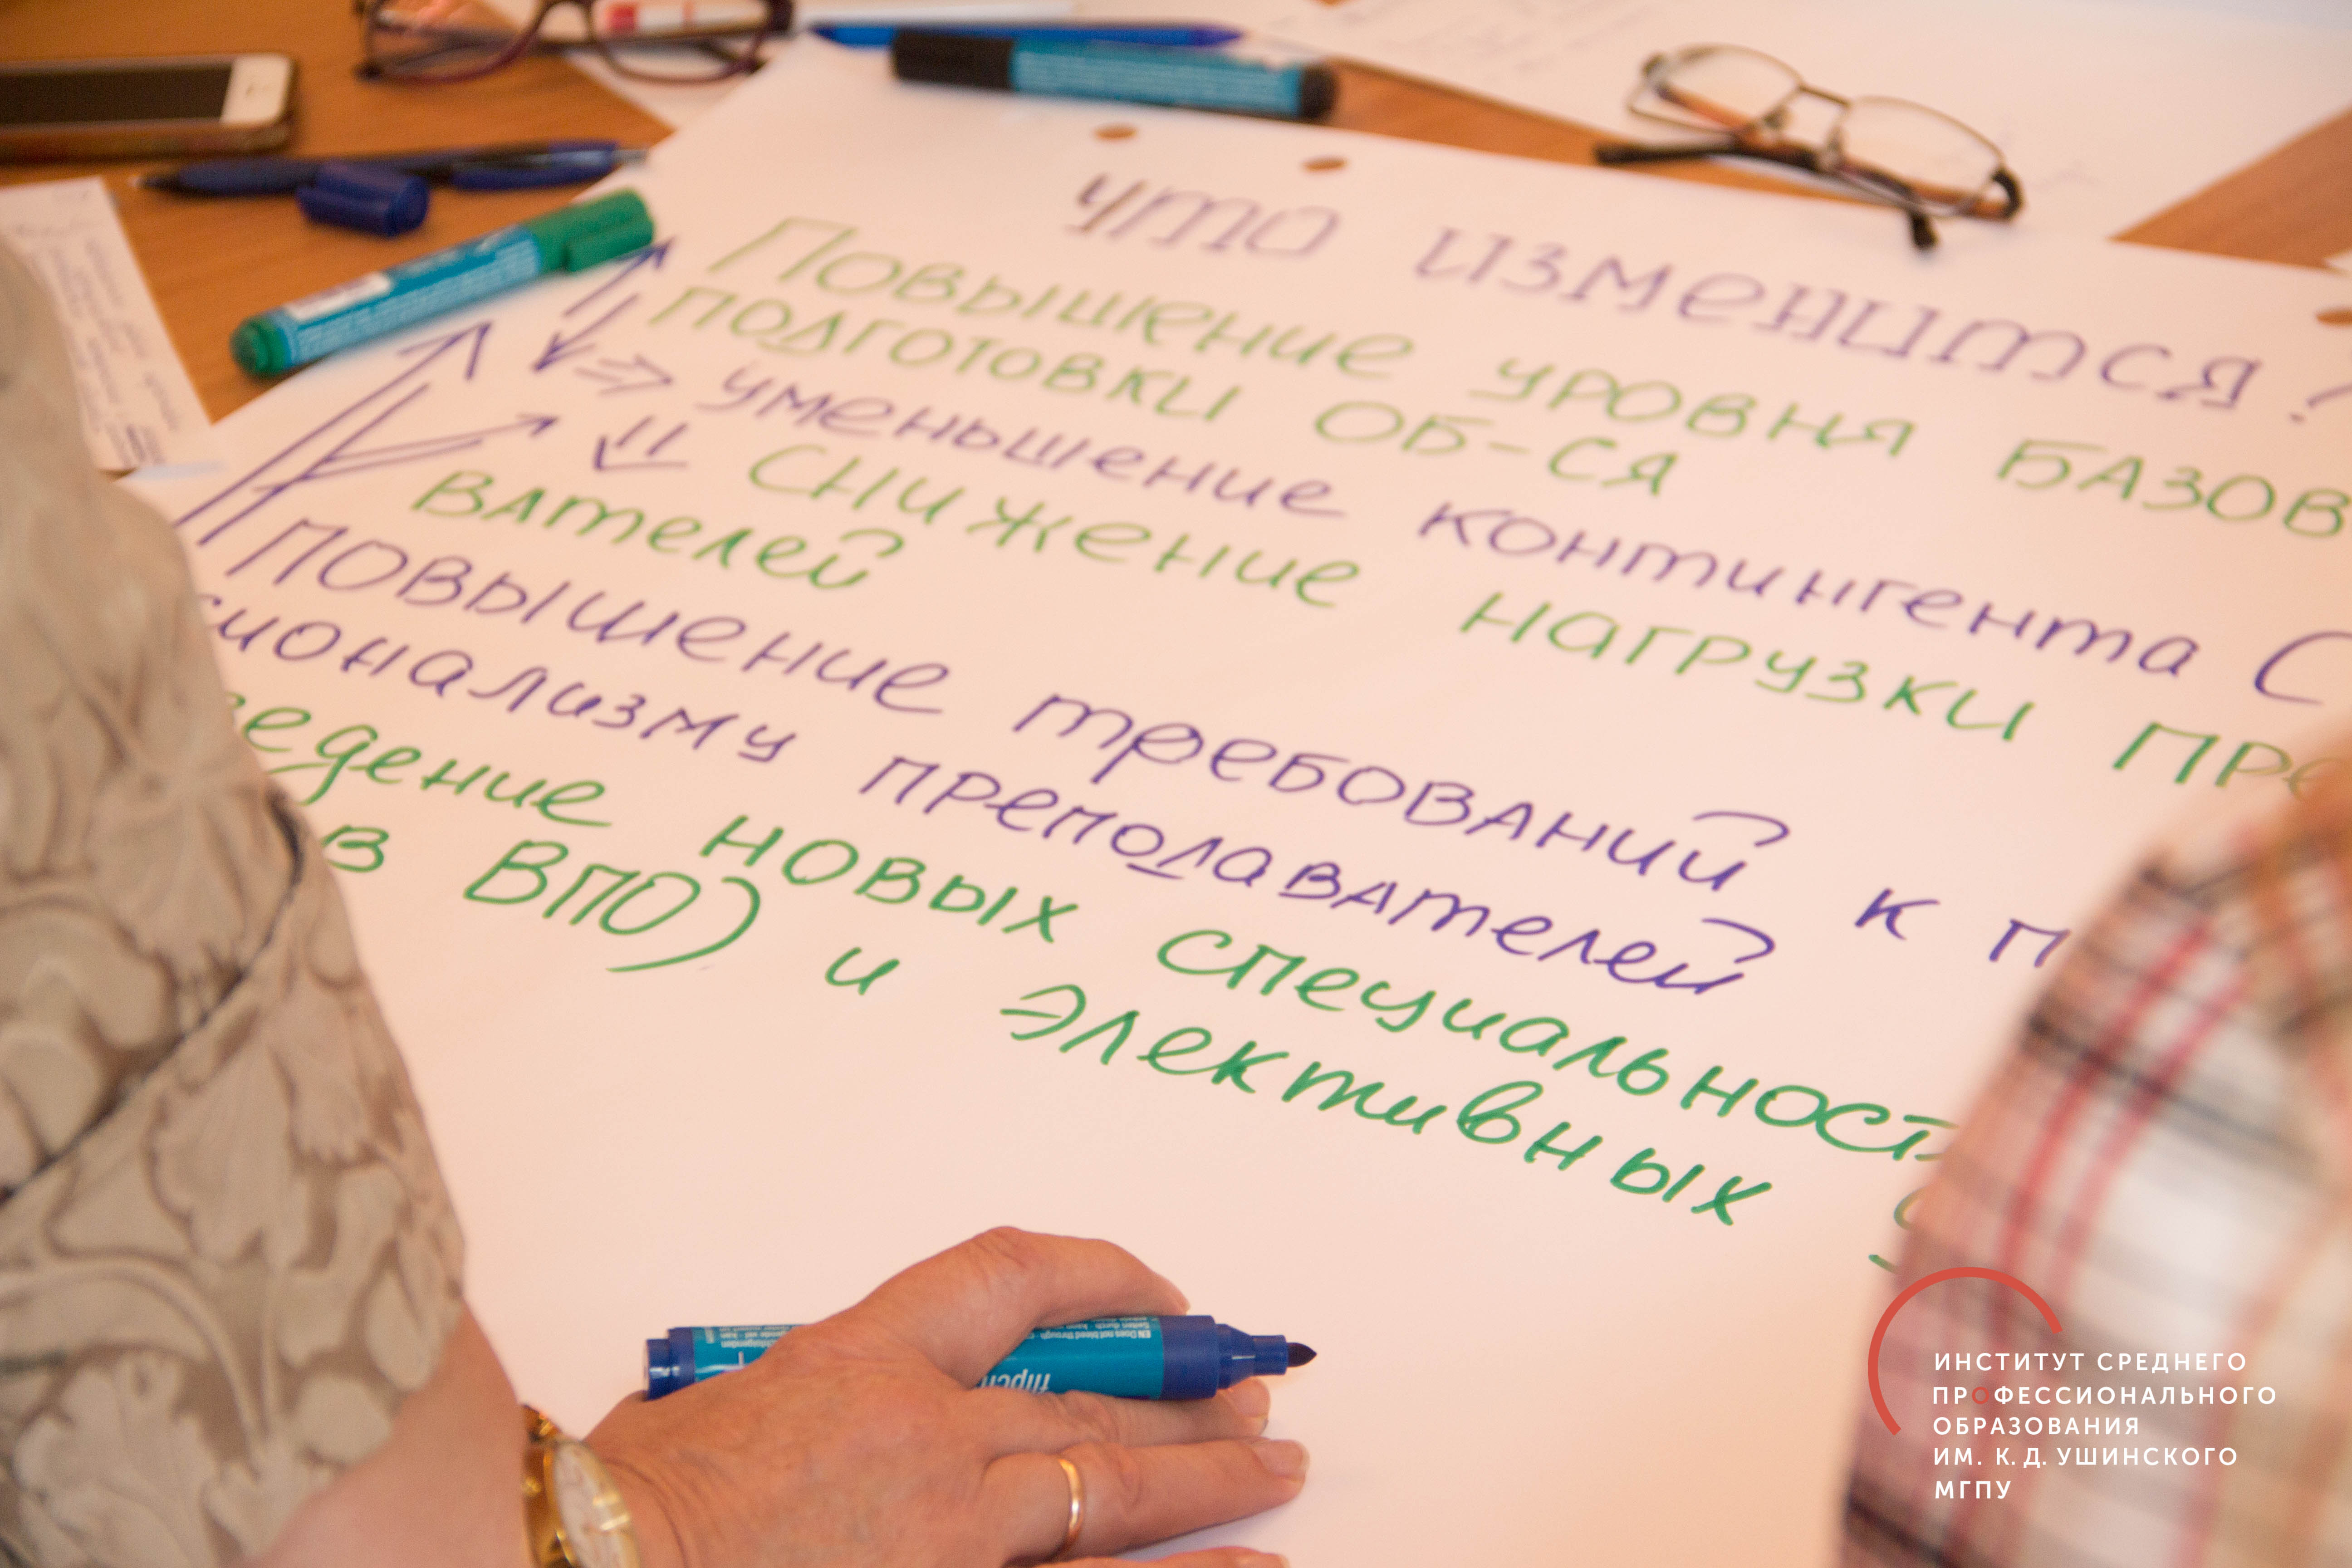 Что изменится?
Повышение уровня базов
подготовки об-ся
⇒ уменьшение контингента С
снижение нагрузки пре
вателей
Повышение требований к п
сионализму преподавателей
едение новых специальност
в ВПО) и элективных
flipch
EN Does not bleed through
ИНСТИТУТ СРЕДНЕГО
ПРОФЕССИОНАЛЬНОГО
ОБРАЗОВАНИЯ
ИМ. К. Д. УШИНСКОГО
МГПУ